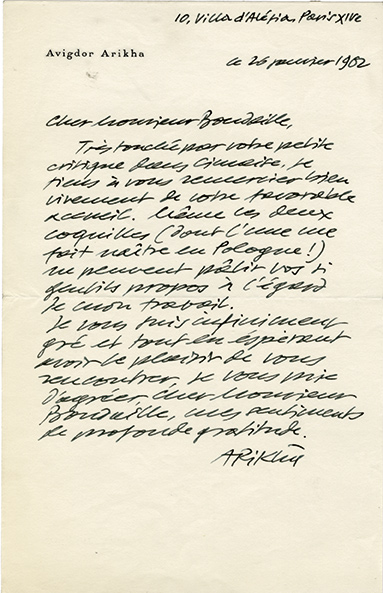 10, Villa d'Alésia, Paris XIVe
Avigdor Arikha
le 26 janvier 1962
Cher Monsieur Boudaille,
Très touché par votre petite
critique dans Cimaise, je
tiens à vous remercier bien
vivement de votre favorable
accueil. Même ces deux
coquilles (dont l'une me
fait naître en Pologne!)
ne peuvent pâlir vos si
gentils propos à l'égard
de mon travail.
Je vous suis infiniment
gré et tout en espérant
avoir le plaisir de vous
rencontrer, je vous prie
d'agréer, cher Monsieur
Boudaille, mes sentiments
de profonde gratitude.
ARIKHA